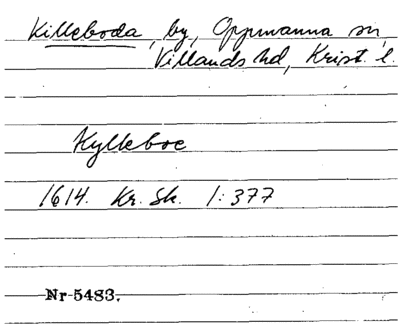 Killeboda, by, Oppmanna sn,
Villands hd, Krist. l.
Kylleboe
1614. Kr. Sk. 1:377
Nr 5483.